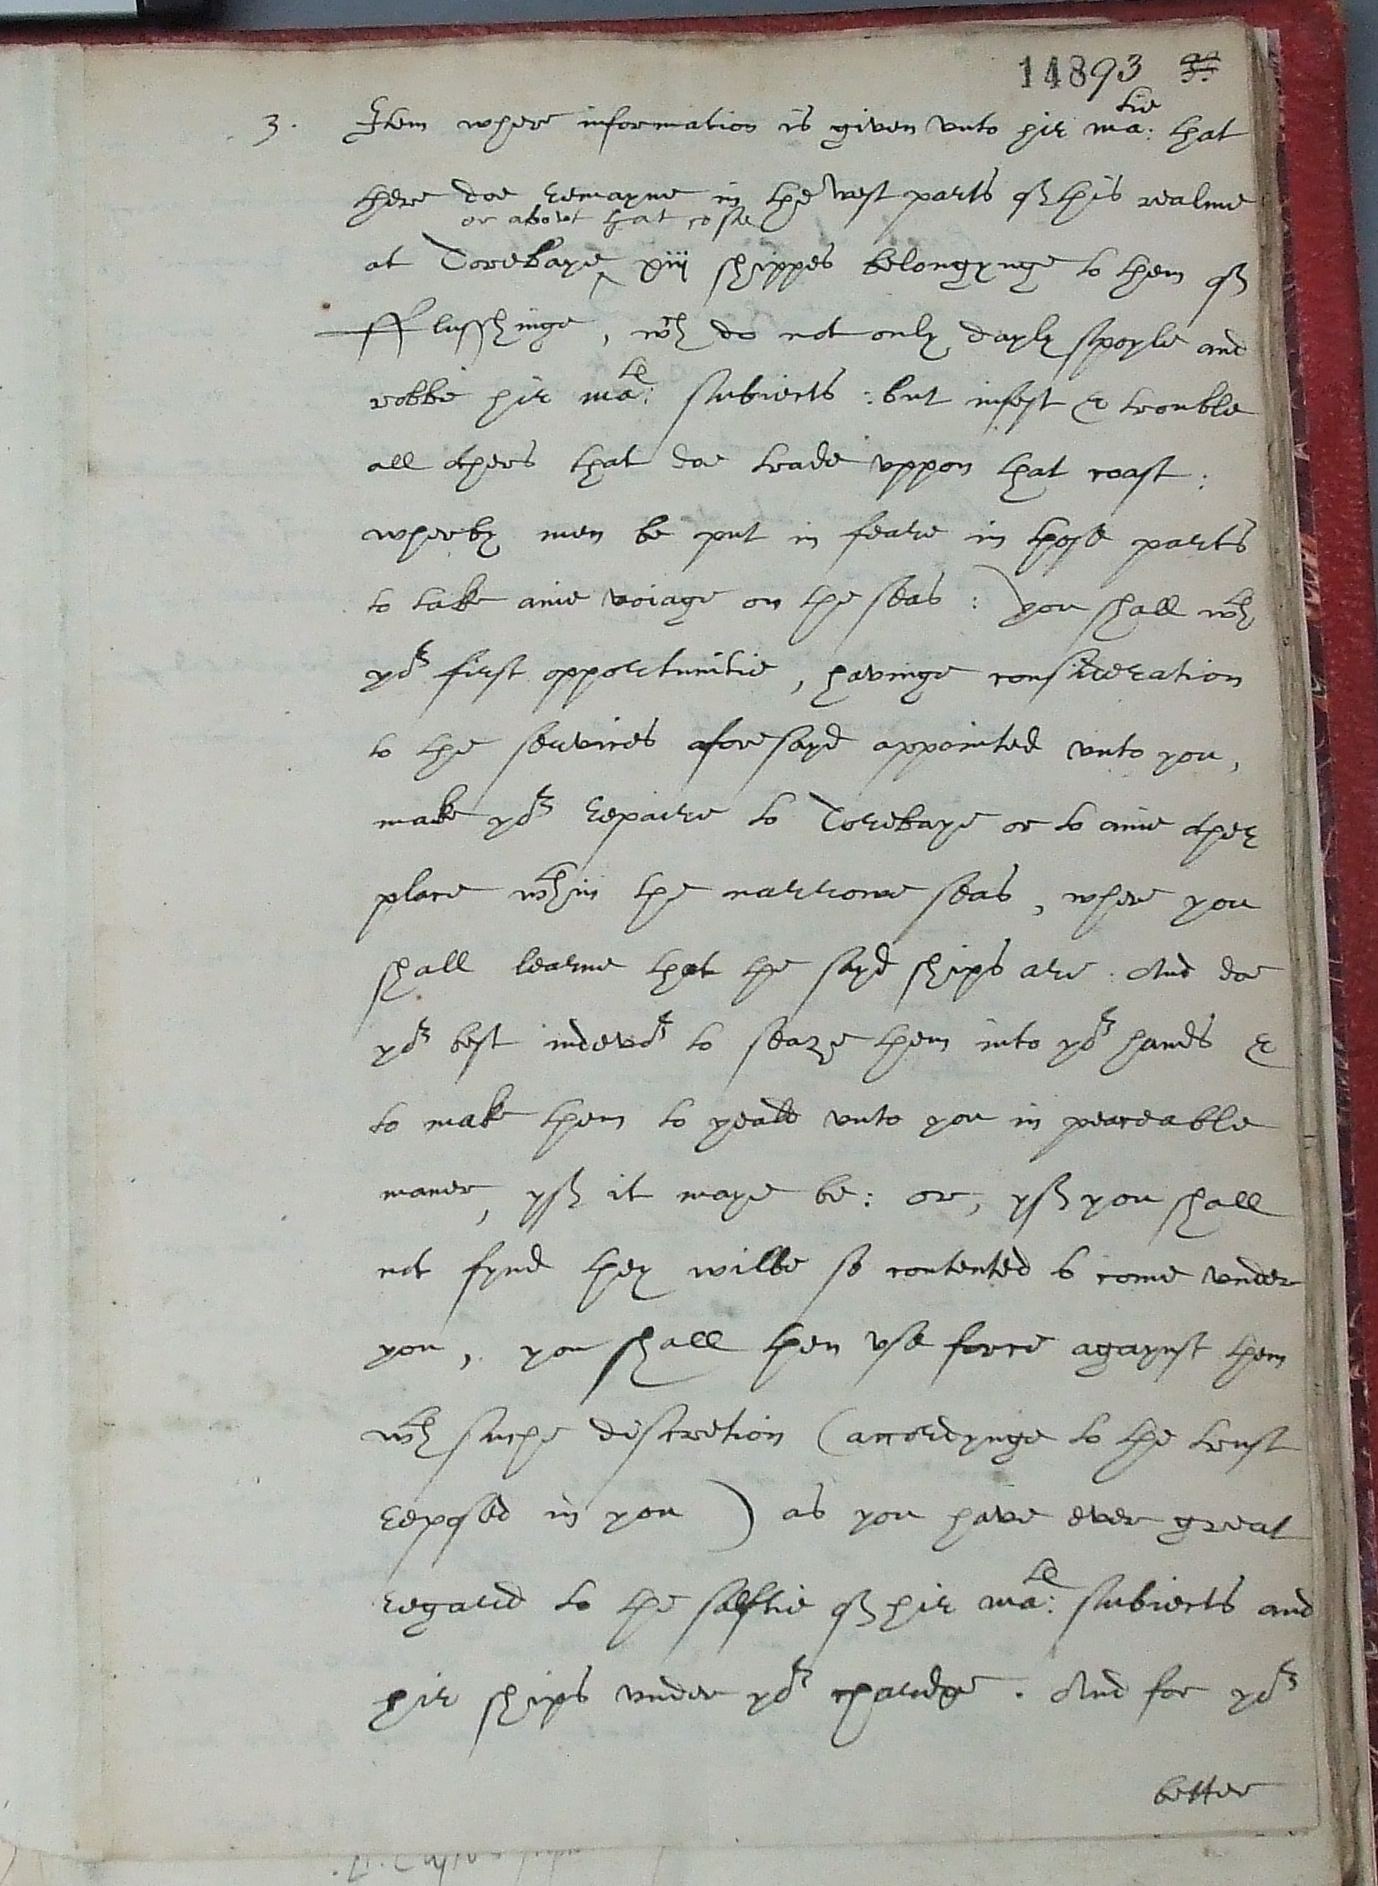 14893
3. Item where information is given vnto hir Ma:tie that
there doe remayne in the West parts of this realme
or about that coste
at Torebaye ^ xiij shippes belongynge to them of
fflusshinge, wch do not only dayly spoyle and
robbe hir Ma:te subiects : but infest & trouble
all others that doe trade vppon that coast :
wherby men be put in feare in those parts
to take anie voiage on the seas : ) you shall wth
yor first opportunitie, havinge consideration
to the services aforesayd appointed vnto you,
make yor repaire to Torebaye or to anie other
place wthin the narrowe seas, where you
shall learne that the sayd ships are. And doe
yor best indevor to seaze them into yor hands &
to make them to yeald vnto you in peaceable
maner, yf it maye be: or, yf you shall
not fynd they wilbe so contented to come vnder
you, you shall then vse force agaynst them
wth suche discretion (accordynge to the trust
reposed in you ) as you have ever great
regard to the saftie of hir Ma:te subiects and
hir ships vnder yor chardge. And for yor
better